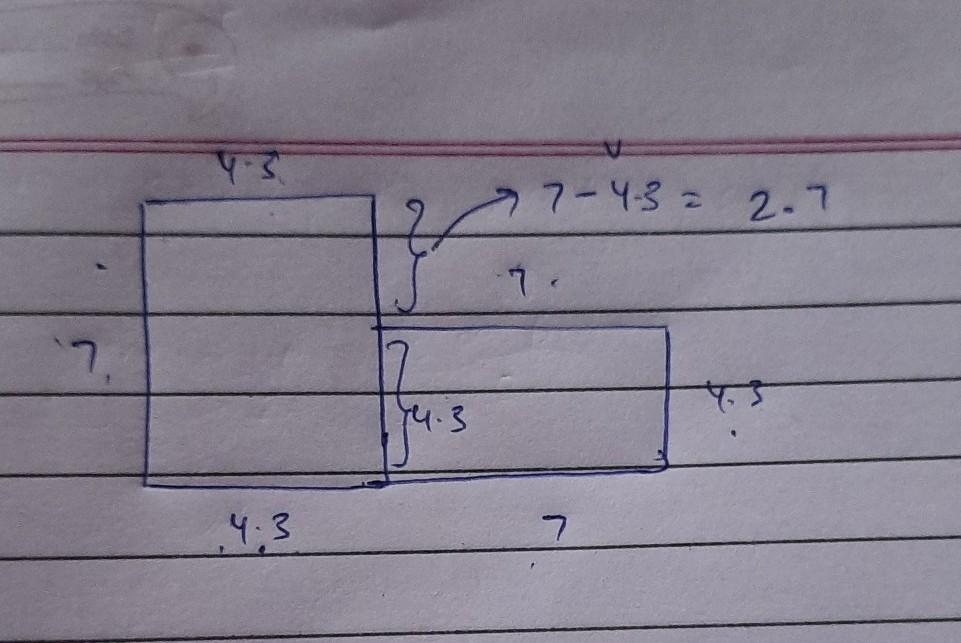 4.3
7-4.3= 2.7
7.
7
4.3
4.3
4.3
7